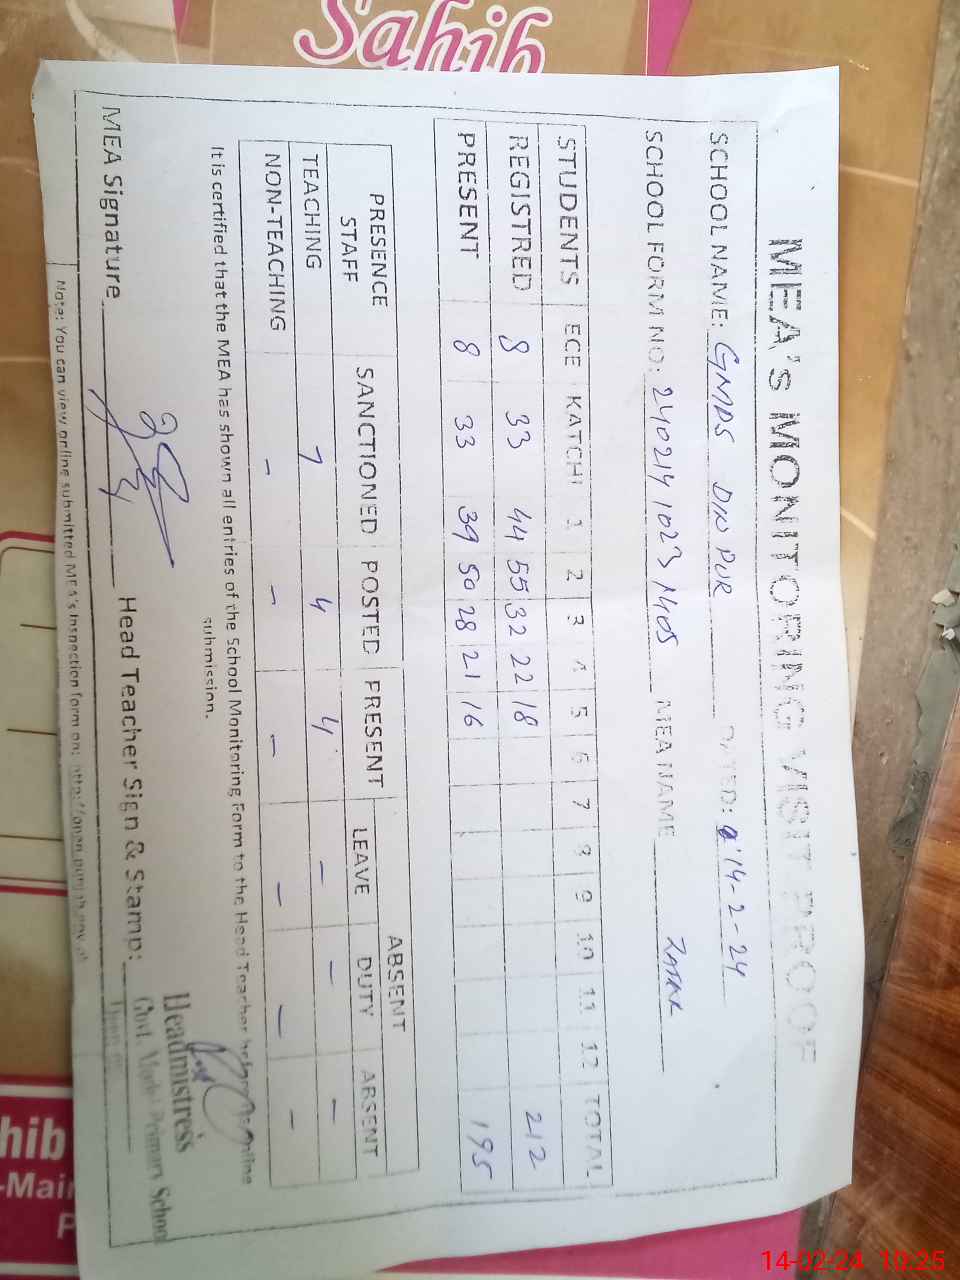 Sahib
MEA's MONITORING VISIT PROOF
SCHOOL NAME: GMPS DIN PUR DATED: 14-2-24
SCHOOL FORM NO: MEA NAME
STUDENTS ECE KATCHI 1 2 3 4 5 6 7 8 9 10 11 12 TOTAL
REGISTRED 8 33 44 55 32 22 18 212
PRESENT 8 33 39 50 28 21 16 195
PRESENCE STAFF SANCTIONED POSTED PRESENT ABSENT
LEAVE DUTY ABSENT
TEACHING 7 4 4 - - -
NON-TEACHING - - - - - -
It is certified that the MEA has shown all entries of the School Monitoring Form to the Head Teacher before its online
submission.
MEA Signature Head Teacher Sign & Stamp:
Headmistress
Govt. Model Primary School
Note: You can view online submitted MEA's Inspection form on:
hib
-Mair
P
14-02-24 10:25